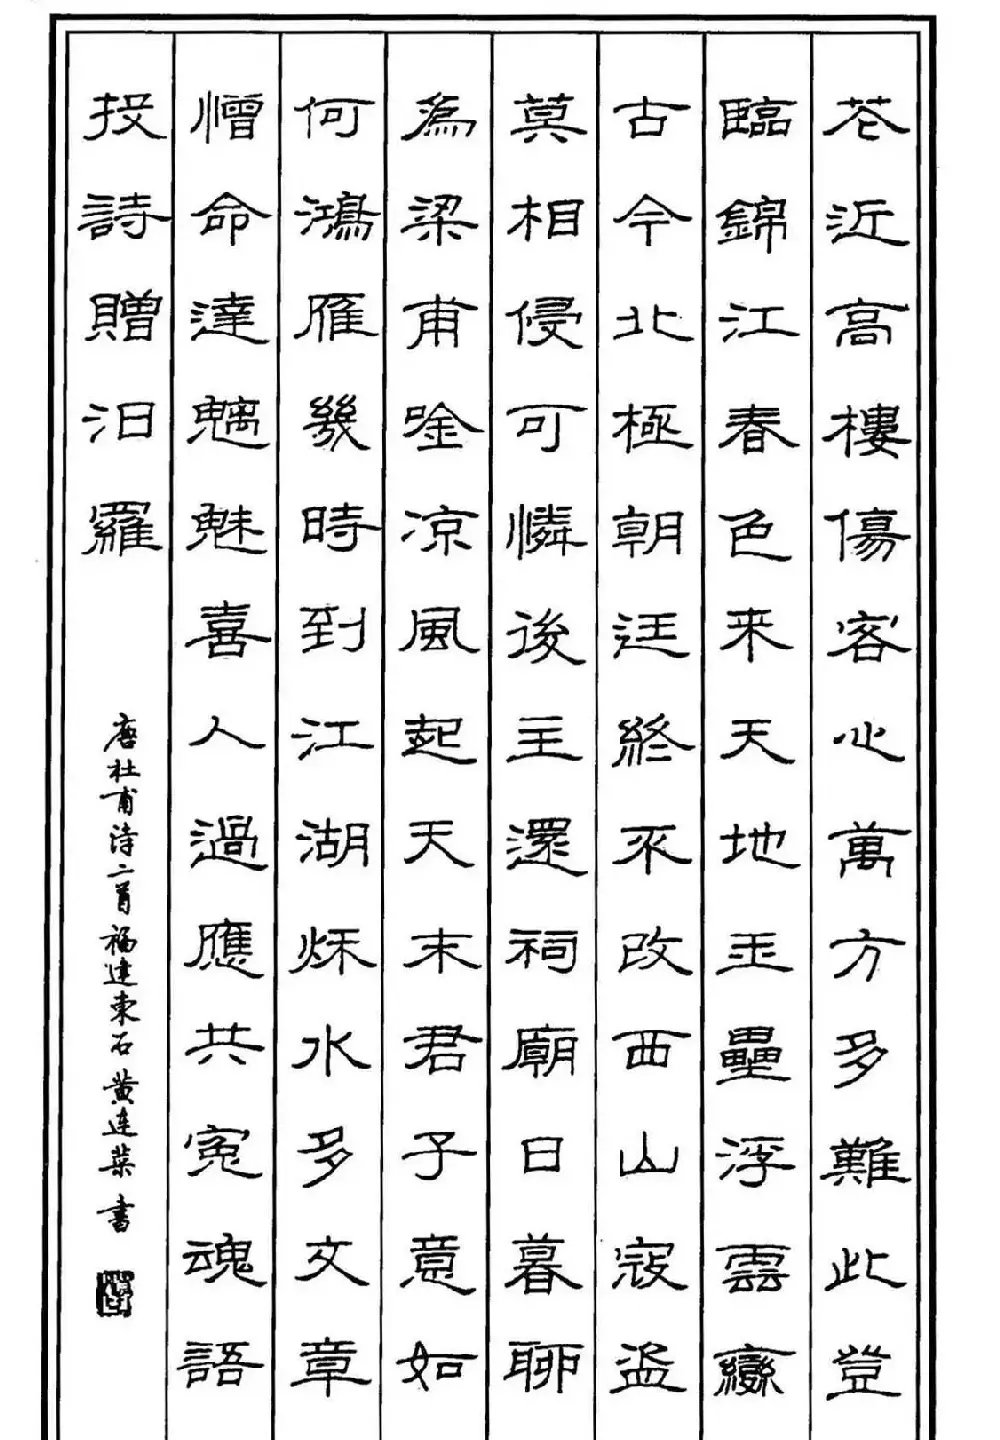 花近高樓傷客心萬方多難此登
臨錦江春色来天地玉壘浮雲變
古今北極朝廷終不改西山寇盗
莫相侵可憐後主還祠廟日暮聊
為梁甫唫凉風起天末君子意如
何鴻雁幾時到江湖秋水多文章
憎命達魑魅喜人過應共冤魂語
投詩贈汨羅
唐杜甫诗二首福建東石黄连荣書